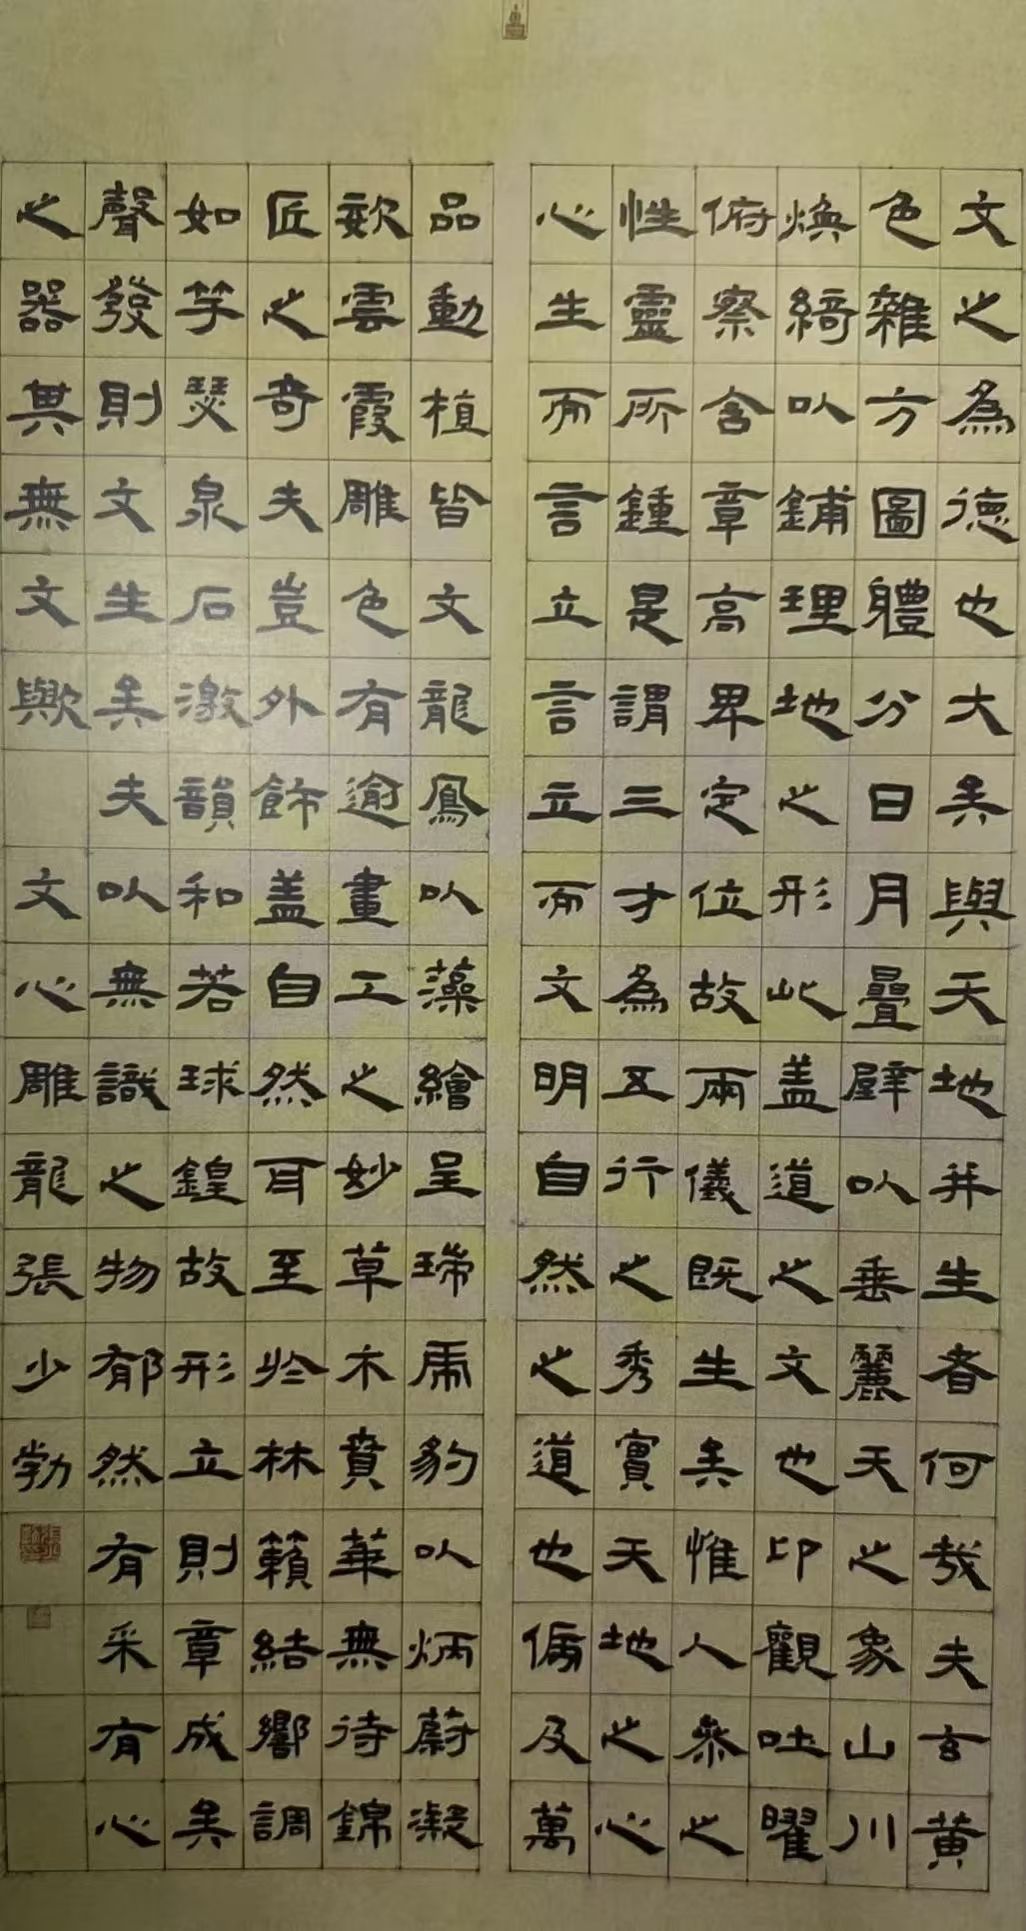 文之為德也大矣與天地并生者何哉夫玄黄
色雜方圖體分日月疊璧以垂麗天之象山川
煥綺以鋪理地之形此盖道之文也卬觀吐曜
俯察含章高卑定位故兩儀既生矣惟人參之
性靈所鍾是謂三才為五行之秀實天地之心
心生而言立言立而文明自然之道也傍及萬
品動植皆文龍鳳以藻繪呈瑞虎豹以炳蔚凝
姿雲霞雕色有逾畫工之妙草木賁華無待錦
匠之奇夫豈外飾盖自然耳至於林籟結響調
如竽瑟泉石激韻和若球鍠故形立則章成矣
聲發則文生矣夫以無識之物郁然有采有心
之器其無文歟 文心雕龍張少勃